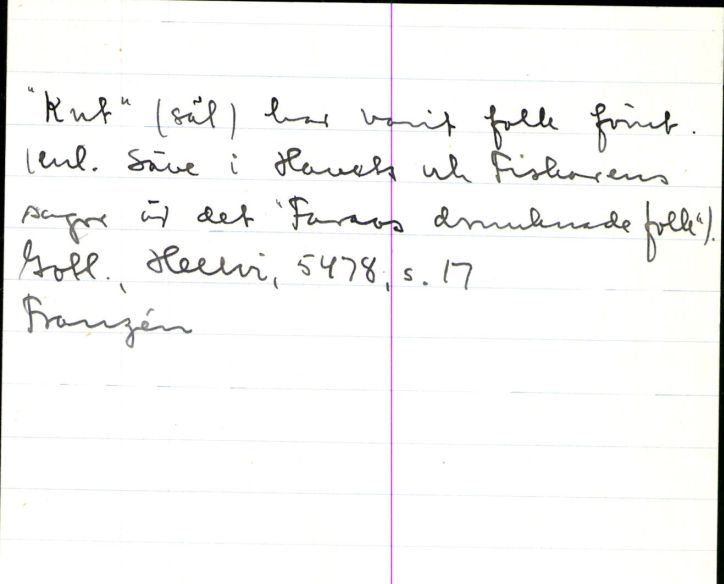 "Kut" (säl) har varit folk förut.
(enl. Säve i Havets och Fiskarens
sagor är det "Faraos drunknade folk").
Gotl., Hellvi, 5478, s. 17
Franzén